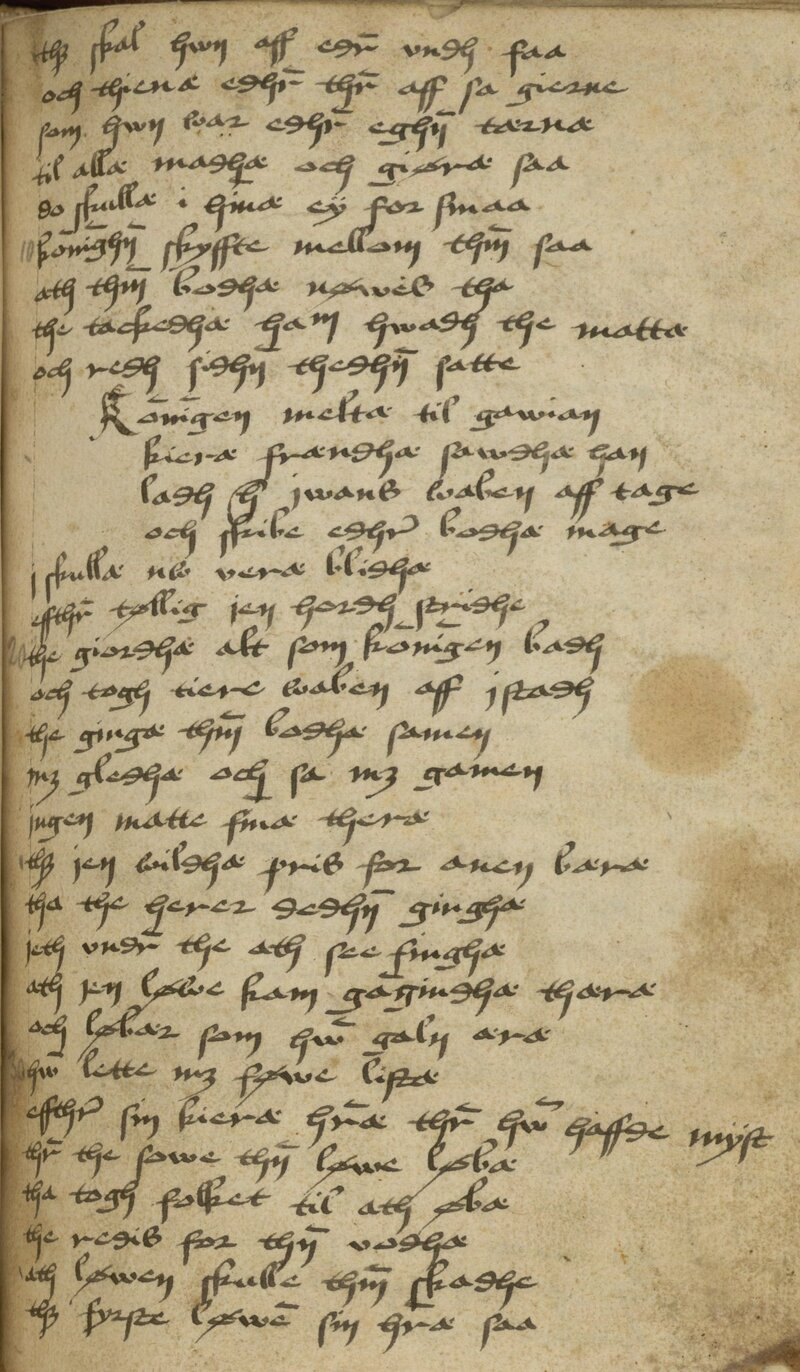 thꝫ skal hwn aff edr̄ vndh faa
och thienæ edhr̄ thr̄ aff sa gierne
som hwn war edhr̄ eghn̄ tærnæ
til allæ madhæ och giøræ saa
do skullæ i hinæ ey for smaa
kōnīghn̄ skyffte mellom thm̄ saa
ath thm̄ bodhæ nøwes tha
the tackedhæ ham hwadh the mattæ
och redh sidhn̄ thedhn̄ satte
Kōnīgen meltæ til gawian
kieræ frændhæ sawdhæ han
ladh h̄ jwans waben aff tage
och skibe edhr̄ bodhæ mage
j skullæ nw veræ blidhæ
effthr̄ tøllig jen hordh stridhe
the giordhæ alt som kōnīgen badh
och togh tiere waben aff jstadh
the gingæ thm̄ bodhæ samen
mꝫ gledhæ och sa mꝫ gamen
jngen matte finæ theræ
thꝫ jen wildhæ pris for anen bæræ
tha the herer dedhn̄ ginghæ
jeth vndr̄ the ath see finghæ
ath jen løwe kam gagindhæ thæræ
och løbær som hw̄ galn æræ
hw̄ lette mꝫ føwe listæ
effthr̄ sin kieræ hr̄æ thr̄ hw̄ haffde myst
thr̄ the sowe thn̄ løwe løbæ
tha togh folket til ath øbæ
the redis for thn̄ vodhæ
ath løwen skulle thm̄ skadhe
thꝫ fyrste løwē sin hr̄æ saa